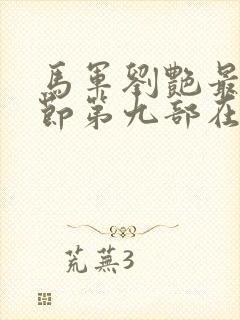 馬軍劉艷最
節第九部在
荒蕪3